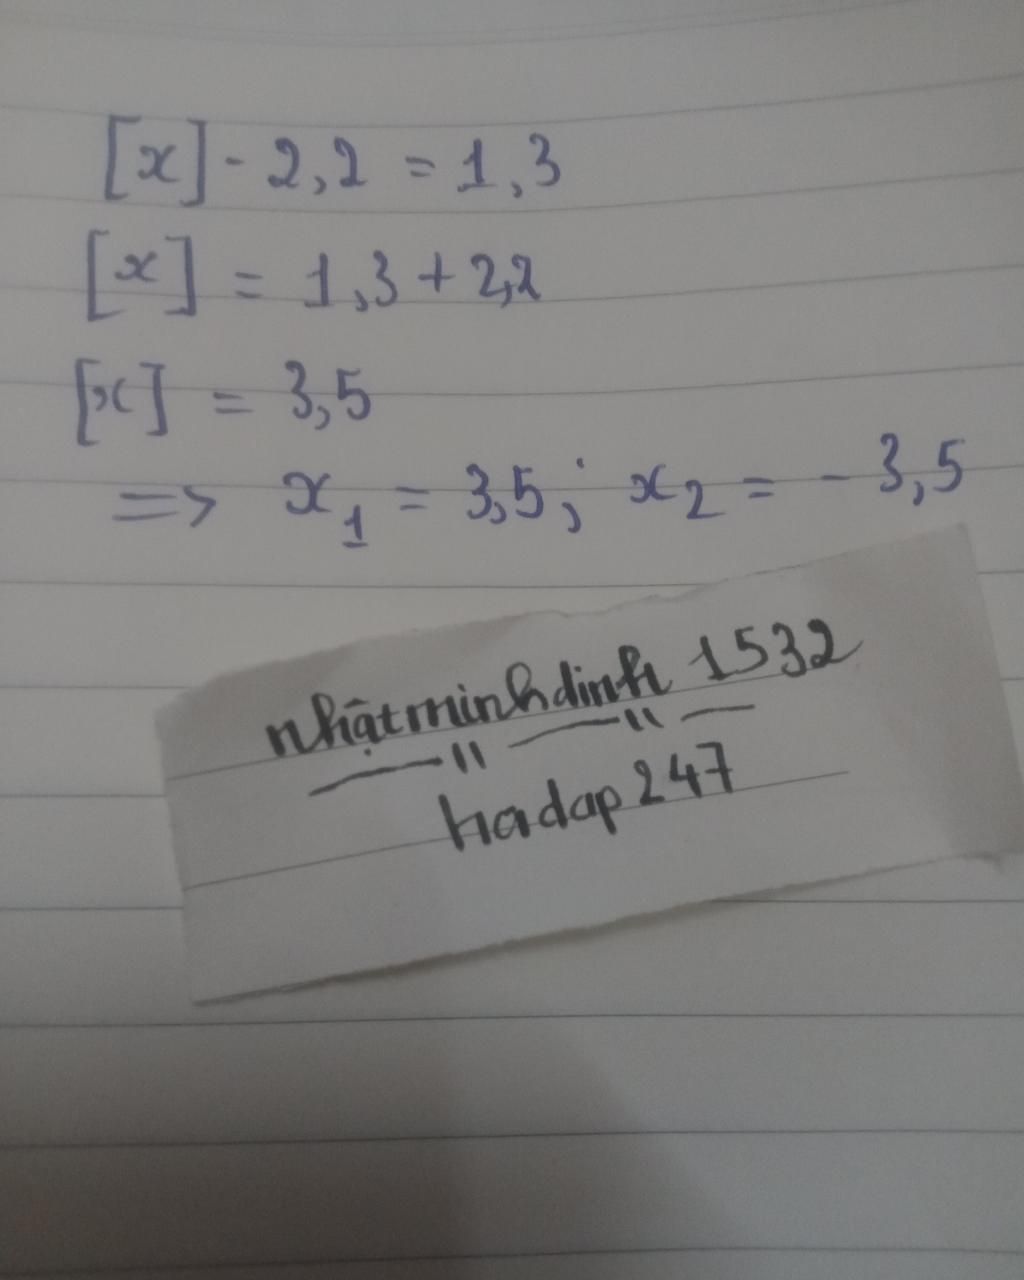 [x] - 2,2 = 1,3
[x] = 1,3 + 2,2
[x] = 3,5
=> x₁ = 3,5; x₂ = - 3,5
nhậtminhdinh 1532
hadap247